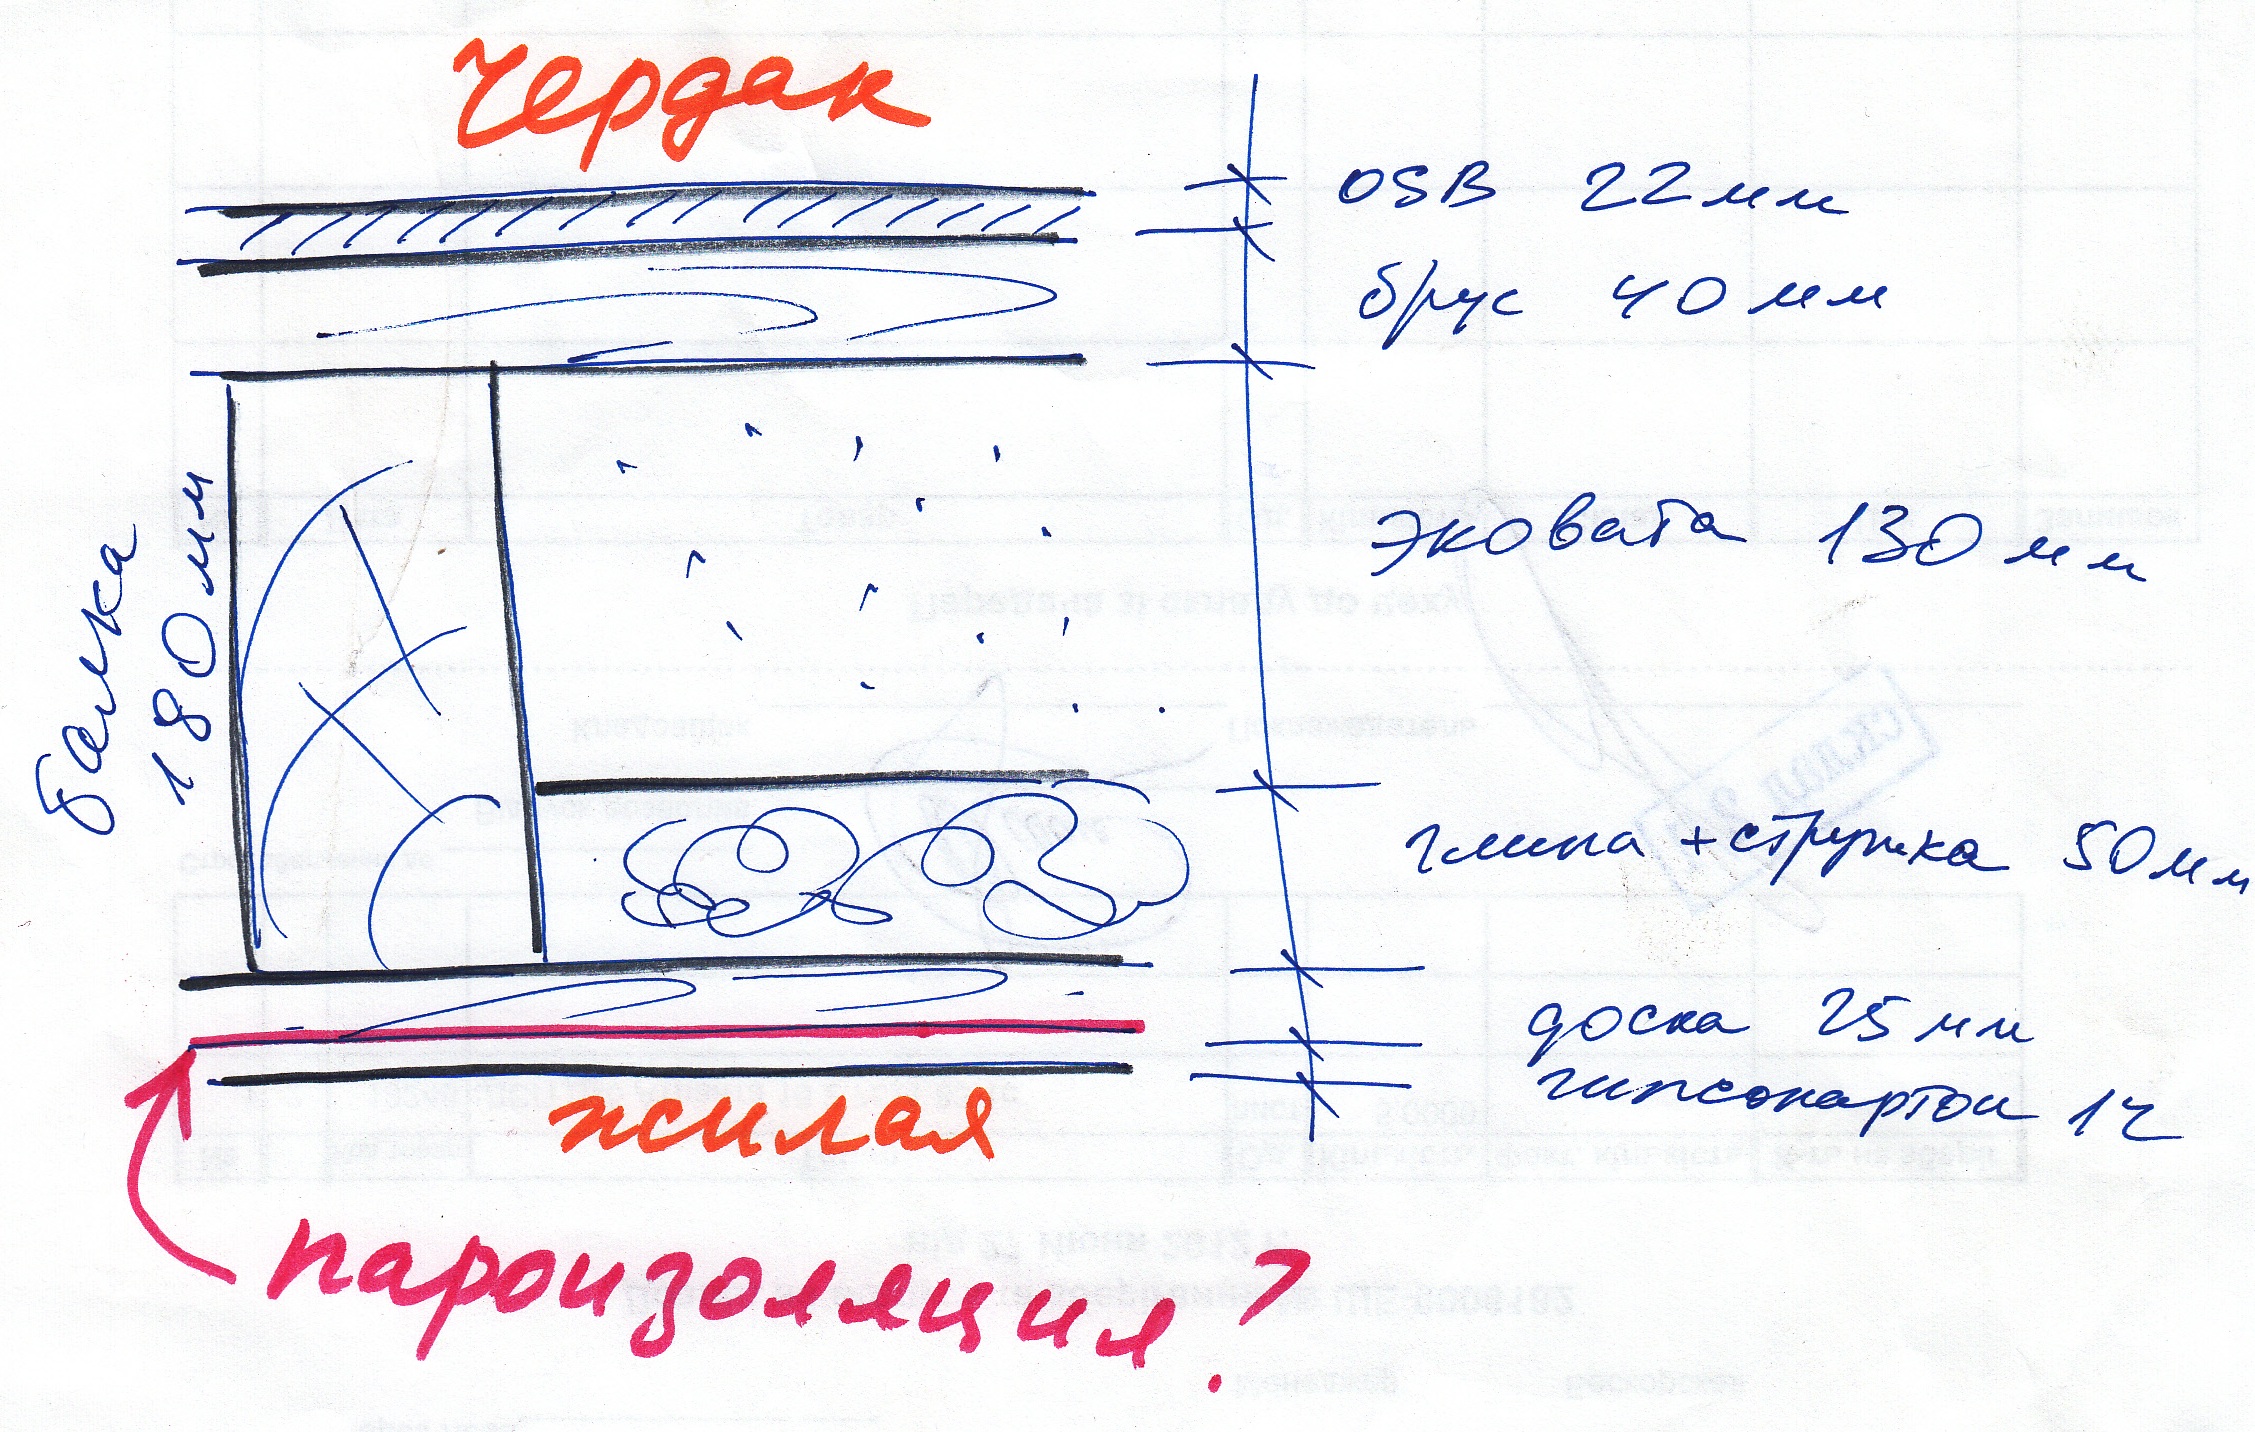 чердак
OSB 22мм
брус 40мм
балка
180мм
эковата 130мм
глина + стружка 50мм
доска 25мм
гипсокартон 12
жилая
пароизоляция?